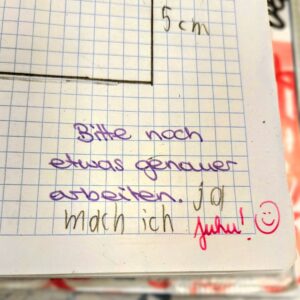 5 cm
Bitte noch
etwas genauer
arbeiten. ja
mach ich juhu!